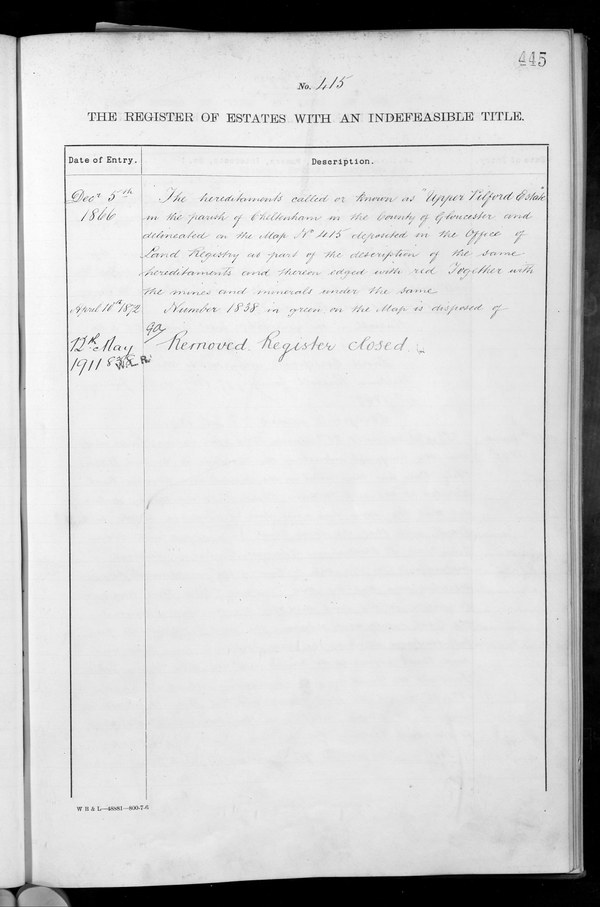 445
No. 415
THE REGISTER OF ESTATES WITH AN INDEFEASIBLE TITLE.
Date of Entry. Description.
Decr 5th 1866 The hereditaments called or known as "Upper Pilford Estate"
in the parish of Cheltenham in the County of Gloucester and
delineated on the Map No 415 deposited in the Office of
Land Registry as part of the description of the same
hereditaments and thereon edged with red Together with
the mines and minerals under the same
April 10th 1872 Number 1838 in green on the Map is disposed of
12th May 1911 Removed. Register closed.
W B & L—46881—800-7-6